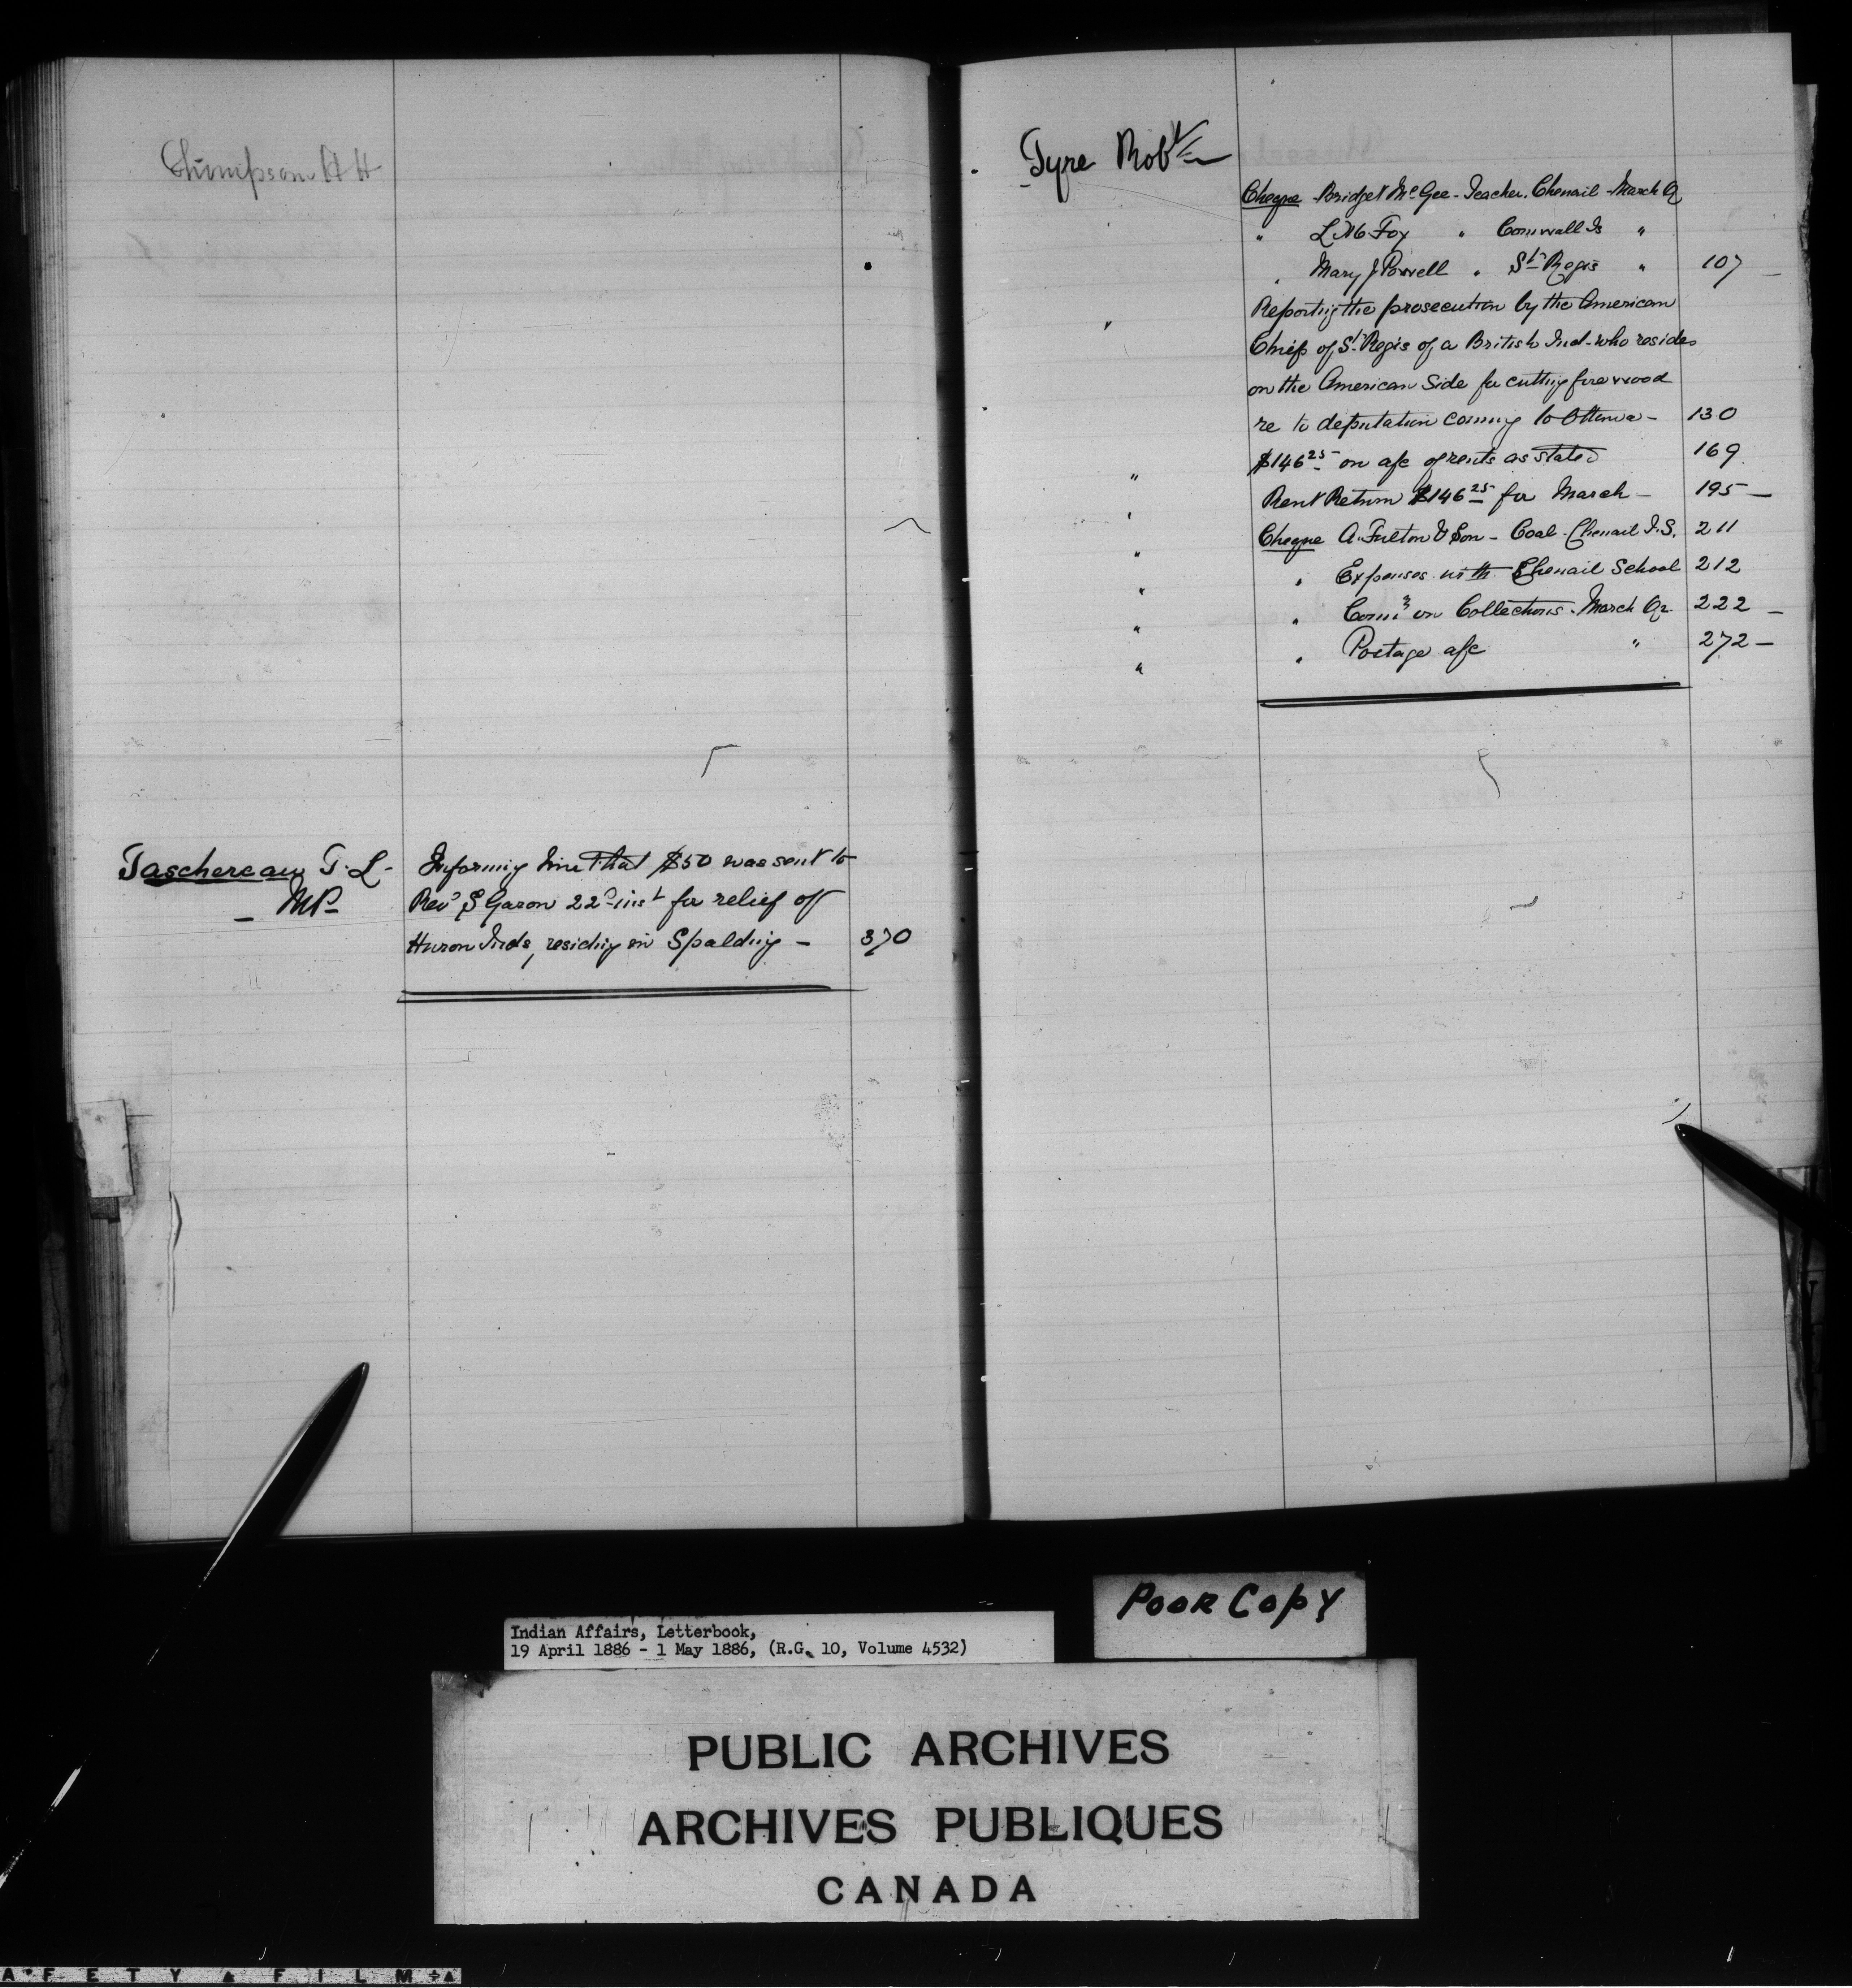 Thimpson A H
Taschereau T. L. - Informing him that $50 was sent to
- MP - Revd S Garon 22d inst for relief of
Huron Inds, residing in Spalding - 370
Tyre Robt
Cheque Bridget McGee - Teacher. Chenail - March Qr
" L M Fox " Cornwall Is "
" Mary J Powell " St Regis " 107 -
" Reporting the prosecution by the American
Chiefs of St Regis of a British Ind. who resides
on the American Side for cutting fire wood
re to deputation coming to Ottawa - 130
" $146 25 on a/c of rents as stated 169.
" Rent Return $146 25 for March - 195 -
" Cheque A. Fulton & Son - Coal - Chenail I.S. 211
" " Expenses with Chenail School 212
" " Comn on Collections. March Qr 222 -
" " Postage a/c " 272 -
Poor Copy
Indian Affairs, Letterbook,
19 April 1886 - 1 May 1886, (R.G. 10, Volume 4532)
PUBLIC ARCHIVES
ARCHIVES PUBLIQUES
CANADA
AFETY FILM